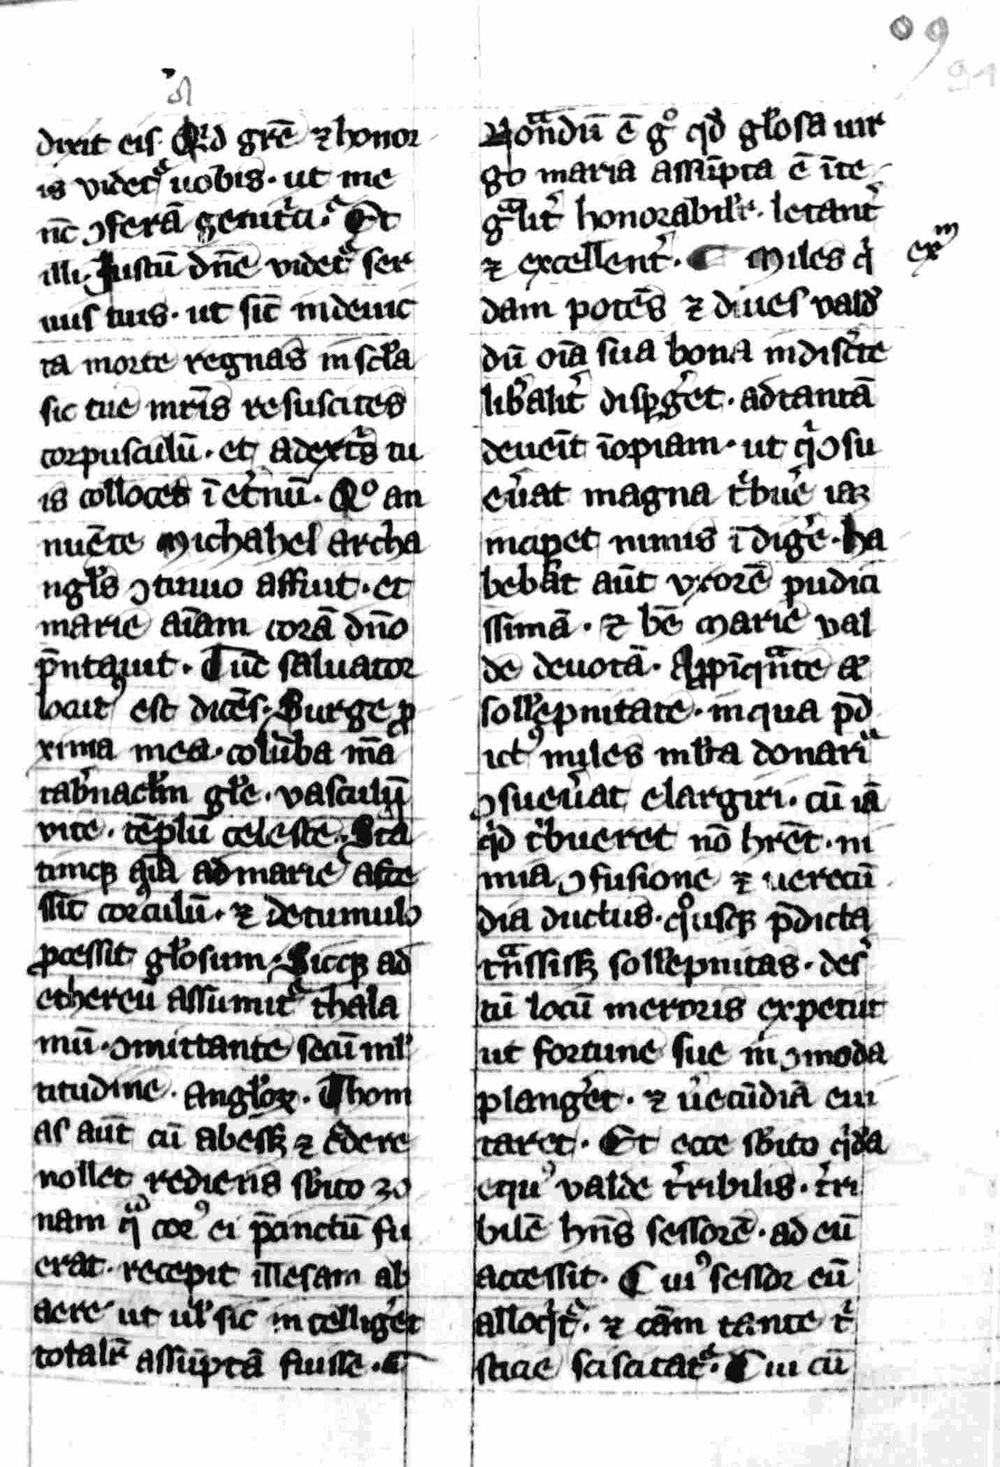 09
91
dixit eis. Qͥd grē ⁊ honor
is videtͬ uobis. ut me
nc̄ ↄferā genitͥci. Et
illi. Iustū dn̄e videtͬ ser
uus tuus. ut sic̄ indeuic
ta morte regnas in scl̄a
sic tue mr̄is resuscites
corpusculū. et adextͥs tu
is colloces ī et̓nū. Qͦ an
nuēte michahel archa
ngl̄s ↄtinuo affuit. et
marie aīam corā dn̄o
p̄ntauit. Tūc saluator
locutꝰ est dicēs. Surge ꝓ
xima mea. colūba m̄a
tab̓nacl̄m gl̄e. vasculū
vite. tēplū celeste. Sta
timqꝫ aīa ad marie acce
ssit corpͥculū. ⁊ detumulo
ꝓcessit gl̄osum. Sicqꝫ ad
ethereū assumitͬ thala
mū. ↄmittante secū ml̓
titudine. angl̓oꝝ. Thom
as aūt cū abess̄ꝫ ⁊ c̓dere
nollet rediens sb̓ito zo
nam qͣ corꝰ ei p̄cinctū fu
erat. recepit illesam ab
aere ut ul̓ sic intellig̓et
totalr̓ assūptā fuisse. ¶
Notandū ē gͦ qd̓ gl̓osa uir
go maria assūpta ē īte
gͣlit̓ honorabil̓r. letant̓
⁊ excellent̓. ¶ Miles qͥ
dam potēs ⁊ diues vald̓
dū oīa sua bona indisc̓te
lib̓alit̓ disꝑg̓et. ad tantā
deuēit īopiam. ut qͥ ↄsu
eu̓at magna tͥbu̓e iaꝫ
inciꝑet minus īdig̓e. ha
bebat aūt vxorē pudici
ssimā. ⁊ bē marie val
de deuotā. Appīqͣnte aū
soll̓epnitate. inqua p̄d
ictꝰ miles ml̓ta donariͣ
ↄsueu̓at elargiri. cū iā
qͥd tͥbueret nō hr̄et. ni
mia ↄfusione ⁊ uerecū
dia ductus. qͦusqꝫ p̄dicta
tͣnssissꝫ soll̓epnitas. des̓
tū locū meroris expetiit
ut fortune sue īn ↄmoda
plang̓et. ⁊ u̓ecūdiā eui
taret. Et ecce sb̓ito qͥdā
equꝰ valde t̓ribilis. t̓ri
bilē hn̄s sessorē. ad eū
accessit. Cuiꝰ sessor eū
alloqͥtͬ. ⁊ cām tante tͥ
sticie sciscitatͬ. Cui cū
exᵐ